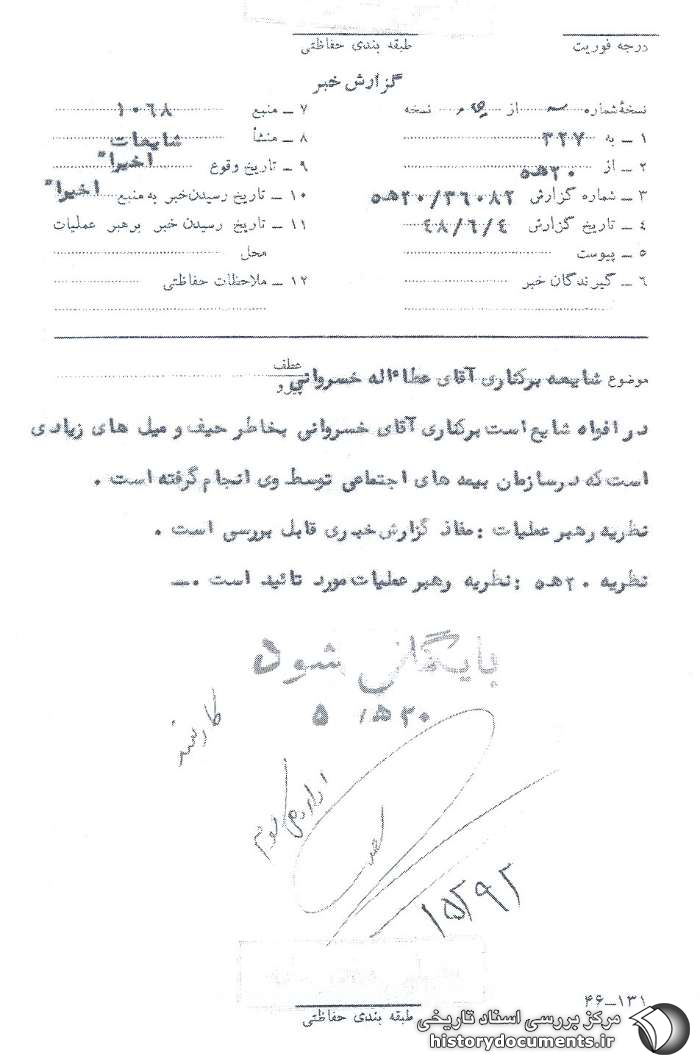 درجه فوریت
طبقه بندی حفاظتی
گزارش خبر
نسخهٔ شماره از نسخه
۱ ـ به ۳۲۷
۲ ـ از ۲۰هـ۵
۳ ـ شماره گزارش ۲۰/۳۶۰۸۲هـ۵
۴ ـ تاریخ گزارش ۴۸/۶/۴
۵ ـ پیوست
۶ ـ گیرندگان خبر
۷ ـ منبع ۱۰۶۸
۸ ـ منشأ شایعات
۹ ـ تاریخ وقوع اخیراً
۱۰ ـ تاریخ رسیدن خبر به منبع اخیراً
۱۱ ـ تاریخ رسیدن خبر برهبر عملیات
محل
۱۲ ـ ملاحظات حفاظتی
موضوع شایعه برکناری آقای عطاءاله خسروانی
عطف
پیرو
در افواه شایع است برکناری آقای خسروانی بخاطر حیف و میل های زیادی
است که در سازمان بیمه های اجتماعی توسط وی انجام گرفته است .
نظریه رهبر عملیات : مفاد گزارش خبری قابل بررسی است .
نظریه ۲۰هـ۵ : نظریه رهبر عملیات مورد تائید است .ــ
بایگانی شود
۲۰هـ۵
کارمند
۱۵۲۹۲
۴۶ــ۱۳۱
طبقه بندی حفاظتی
مرکز بررسی اسناد تاریخی
historydocuments.ir